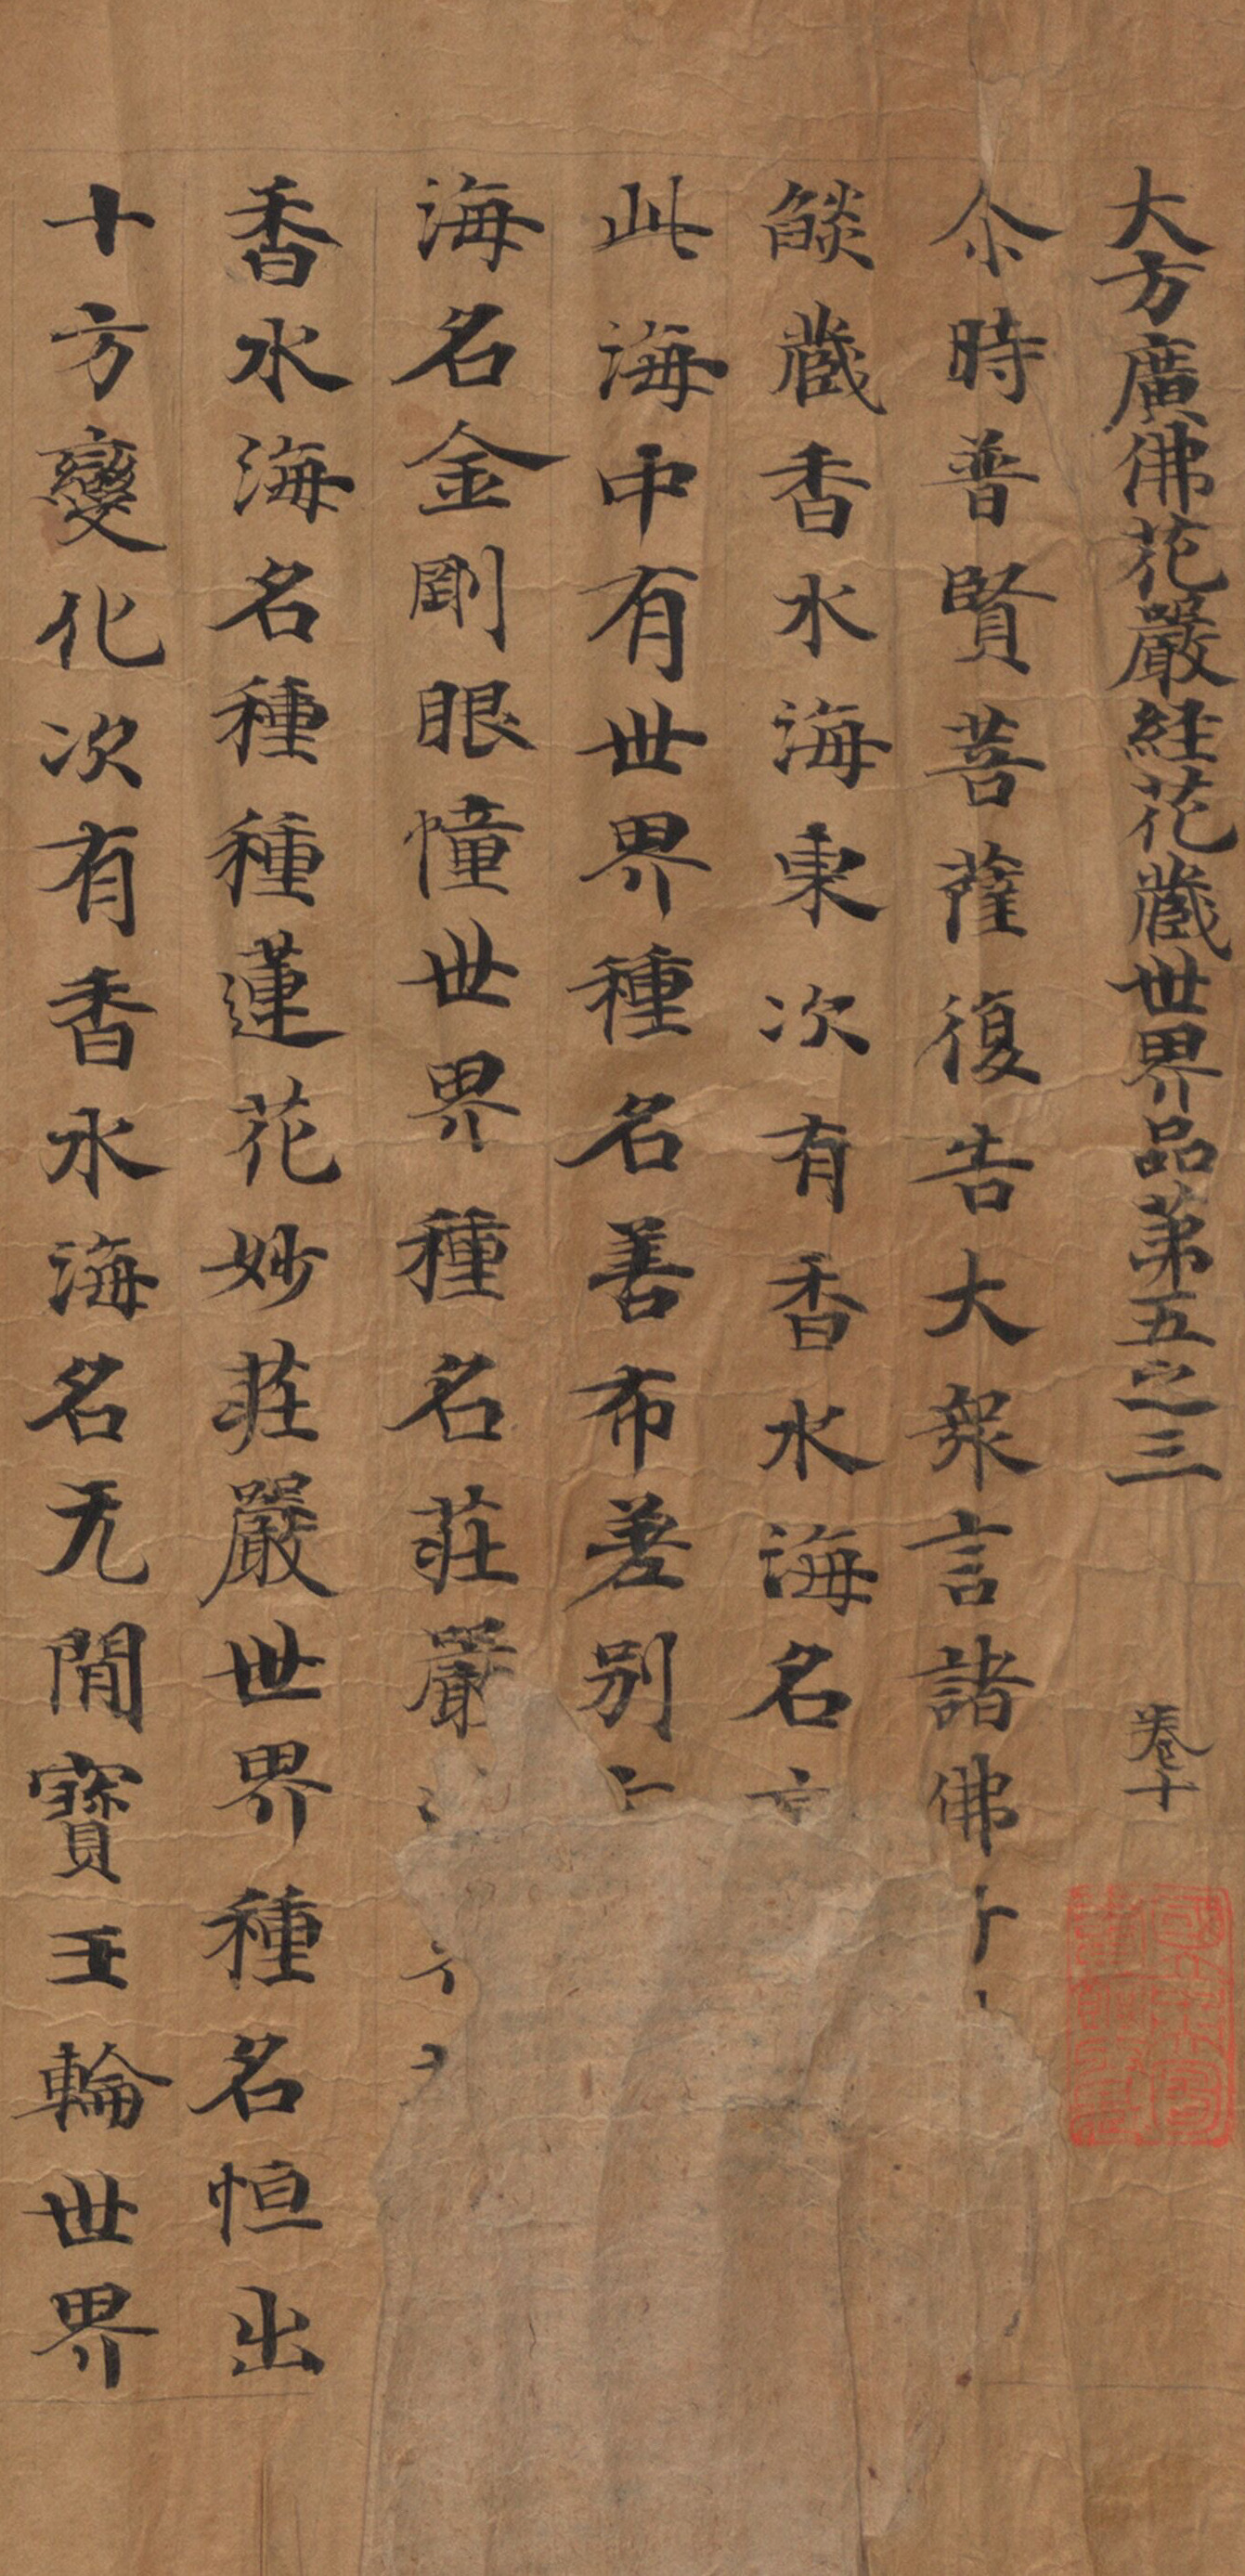 大方廣佛花嚴経花蔵世界品苐五之三 卷十
尒時普賢菩薩復告大衆言諸佛子
燄蔵香水海東次有香水海名
此海中有世界種名善布差别
海名金剛眼幢世界種名莊嚴
香水海名種種蓮花妙莊嚴世界種名恒出
十方變化次有香水海名无閒寶王輪世界